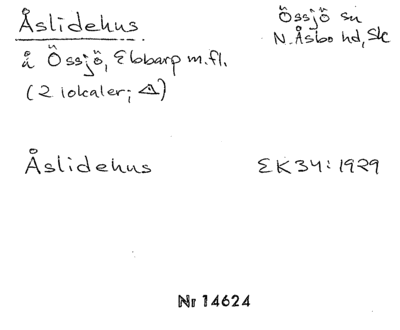 Åslidehus.
Össjö sn
N. Åsbo hd, Sk
å Össjö, Ebbarp m.fl.
(2 lokaler; ⚠)
Åslidehus
EK34:1929
Nr 14624